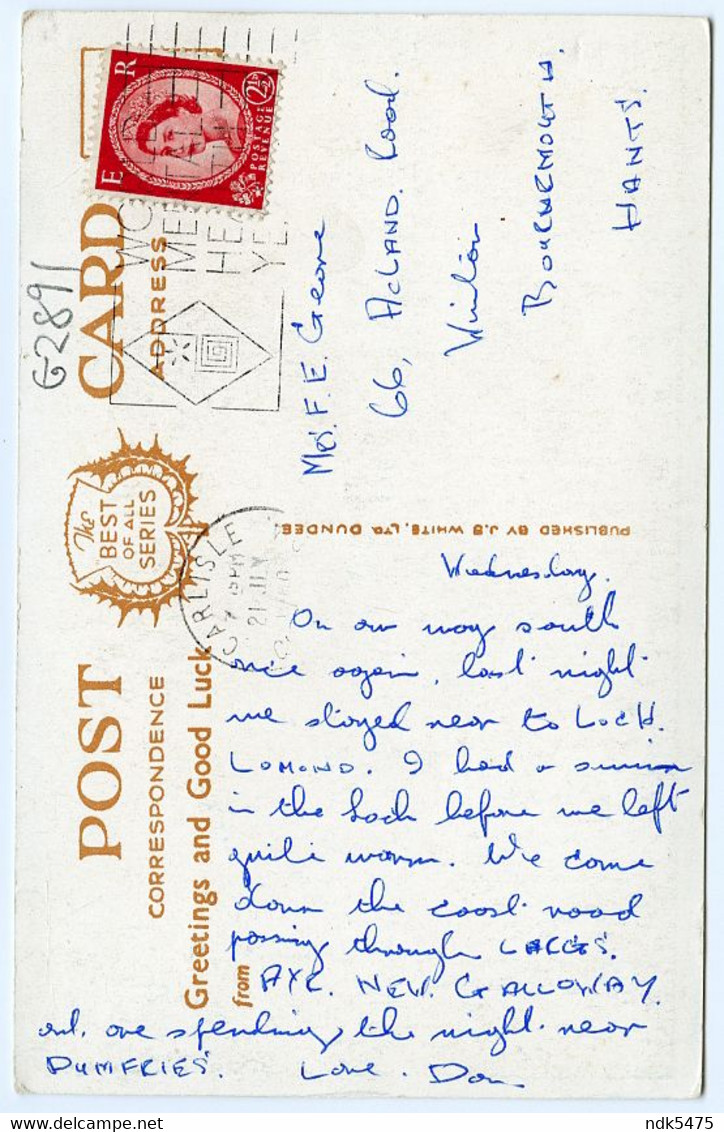 POST CARD
The
"BEST
OF ALL"
SERIES
CORRESPONDENCE
ADDRESS
Greetings and Good Luck
from
E R
2½D
POSTAGE
REVENUE
WO
ME
HE
YE
G2891
CARLISLE
PM
21 JLY
PUBLISHED BY J.B WHITE, LTD. DUNDEE.
Mrs. F. E. George
66, AcLAND. Road.
Winton
BOURNEMOUTH.
HANTS.
Wednesday.
On our way south
once again, last night
we stayed near to LocH.
LOMOND. I had a swim
in the Loch before we left
quite warm. We came
down the coast road
passing through LARGS.
AYR. NEW. GALLOWAY.
and. are spending the night near
DUMFRIES. Love. Don
ndk5475